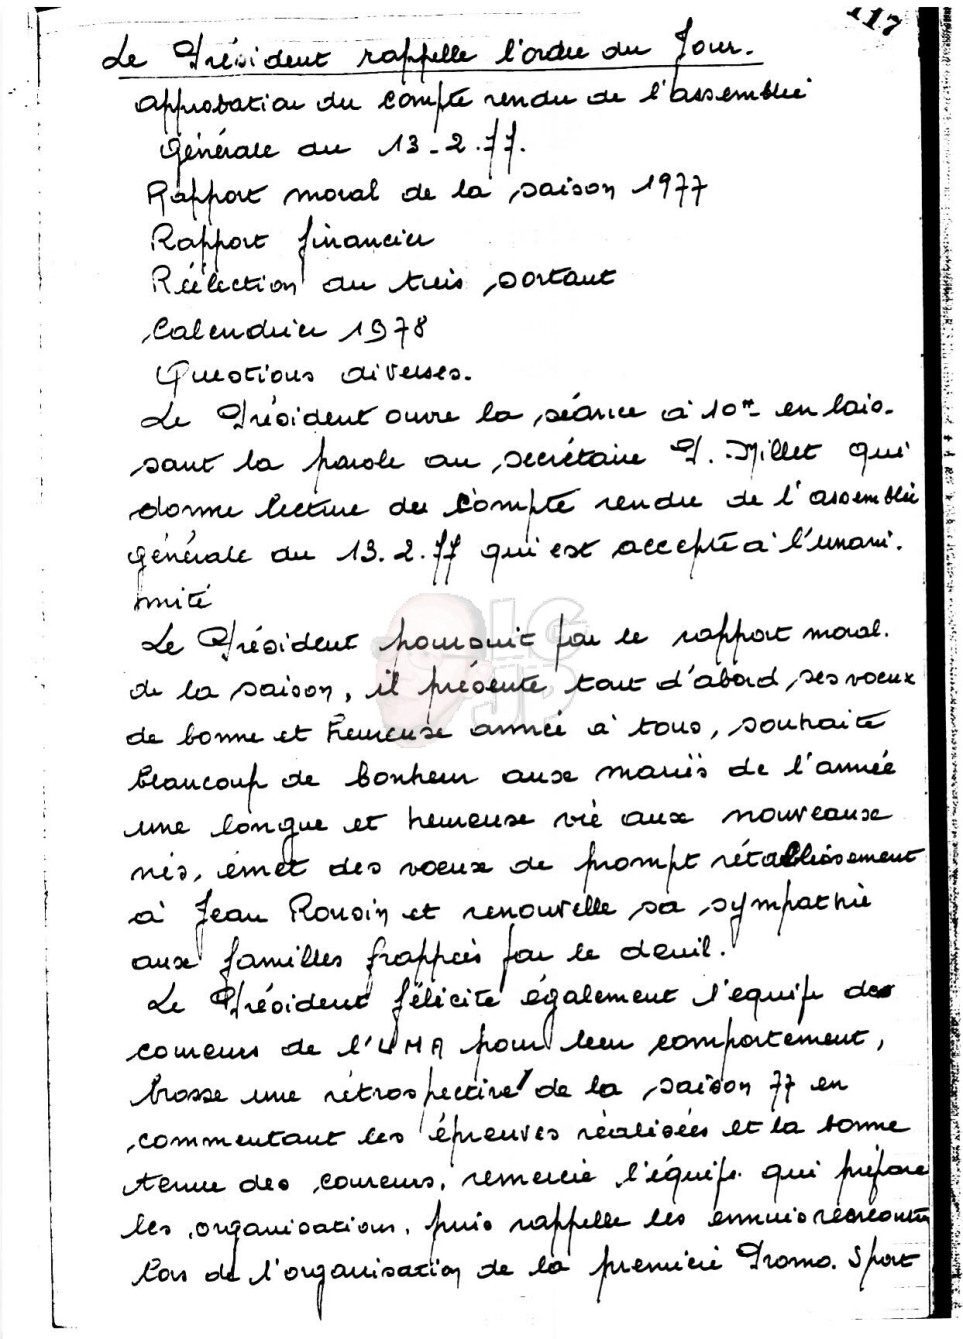 117
Le Président rappelle l'ordre du Jour.
approbation du compte rendu de l'assemblée
générale du 13-2.77.
Rapport moral de la saison 1977
Rapport financier
Réélection du tiers sortant
Calendrier 1978
Questions diverses.
Le Président ouvre la séance à 10H en lais-
sant la parole au secrétaire P. Millet qui
donne lecture du compte rendu de l'assemblée
générale du 13.2.77 qui est accepté à l'unani.
mité
Le Président poursuit par le rapport moral.
de la saison, il présente tout d'abord ses voeux
de bonne et heureuse année à tous, souhaite
beaucoup de bonheur aux mariés de l'année
une longue et heureuse vie aux nouveaux
nés, émet des voeux de prompt rétablissement
à Jean Rousin et renouvelle sa sympathie
aux familles frappées par le deuil.
Le Président félicite également l'equipe des
coureurs de l'UMA pour leur comportement,
brosse une rétrospective de la saison 77 en
commentant les épreuves réalisées et la bonne
tenue des coureurs, remercie l'équipe qui prépare
les organisations, puis rappelle les ennuis rencontrés
lors de l'organisation de la première Promo. Sport
LG
JP